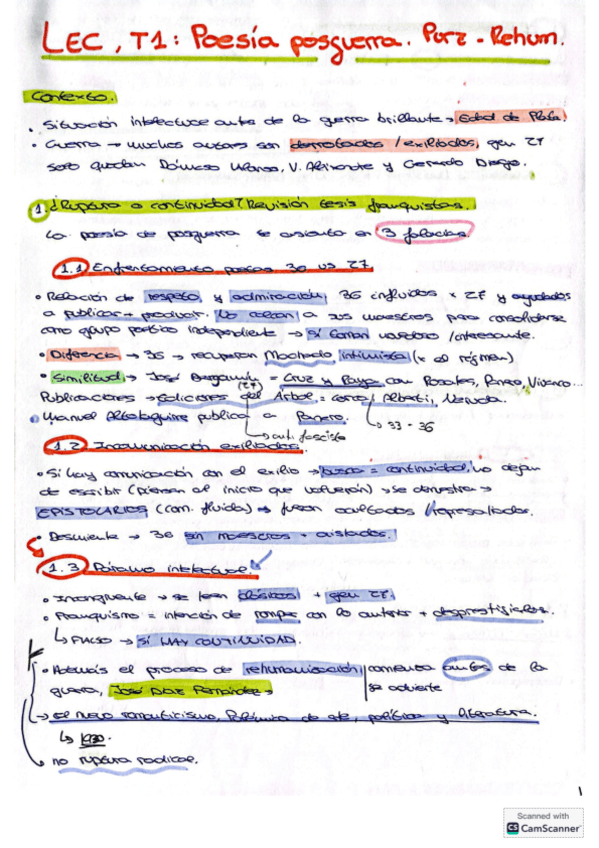 LEC, T1: Poesía posguerra. Purz - Rehum.
Contexto.
• Situación intelectual antes de la guerra brillante → Edad de Plata.
• Guerra → muchos autores son derrotados / exiliados, gen 27
solo quedan Dámaso Alonso, V. Aleixandre y Gerardo Diego.
1. ¿Ruptura o continuidad? Revisión tesis franquistas.
La poesía de posguerra se asienta en 3 falacias.
1.1 Enfrentamiento poetas 36 vs 27
• Relación de respeto y admiración, 36 influidos x 27 y ayudados
a publicar + producir. No atacan a sus maestros para consolidarse
como grupo poético independiente → sí toman
• Diferencia → 36 → recuperan Machado intimista (x el régimen)
• Similitud → José Bergamín = Cruz y Raya con Rosales, Panero, Vivanco...
(27)
Publicaciones → Ediciones del Árbol = Alberti, Neruda.
• Manuel Altolaguirre publica a Panero.
→ antifascista
→ 33 - 36
1.2 Incomunicación exiliados.
• Sí hay comunicación con el exilio → busca = continuidad, no dejan
de escribir (piensan al inicio que volverán) → se demuestra →
EPISTOLARIOS (com. fluida) → fueron ocultados / represaliados.
• Desmiente → 36 sin maestros + aislados.
1.3 Páramo intelectual.
• Incongruente → se leen clásicos + gen 27.
• Franquismo = intención de romper con lo anterior + desprestigiarlos.
↳ FALSO → SÍ HAY CONTINUIDAD.
• Además el proceso de rehumanización comienza antes de la
guerra, José Díaz Fernández → se advierte
→ El nuevo romanticismo, Polémica de arte, política y literatura.
↳ 1930.
no ruptura radical.
1
Scanned with
CS CamScanner